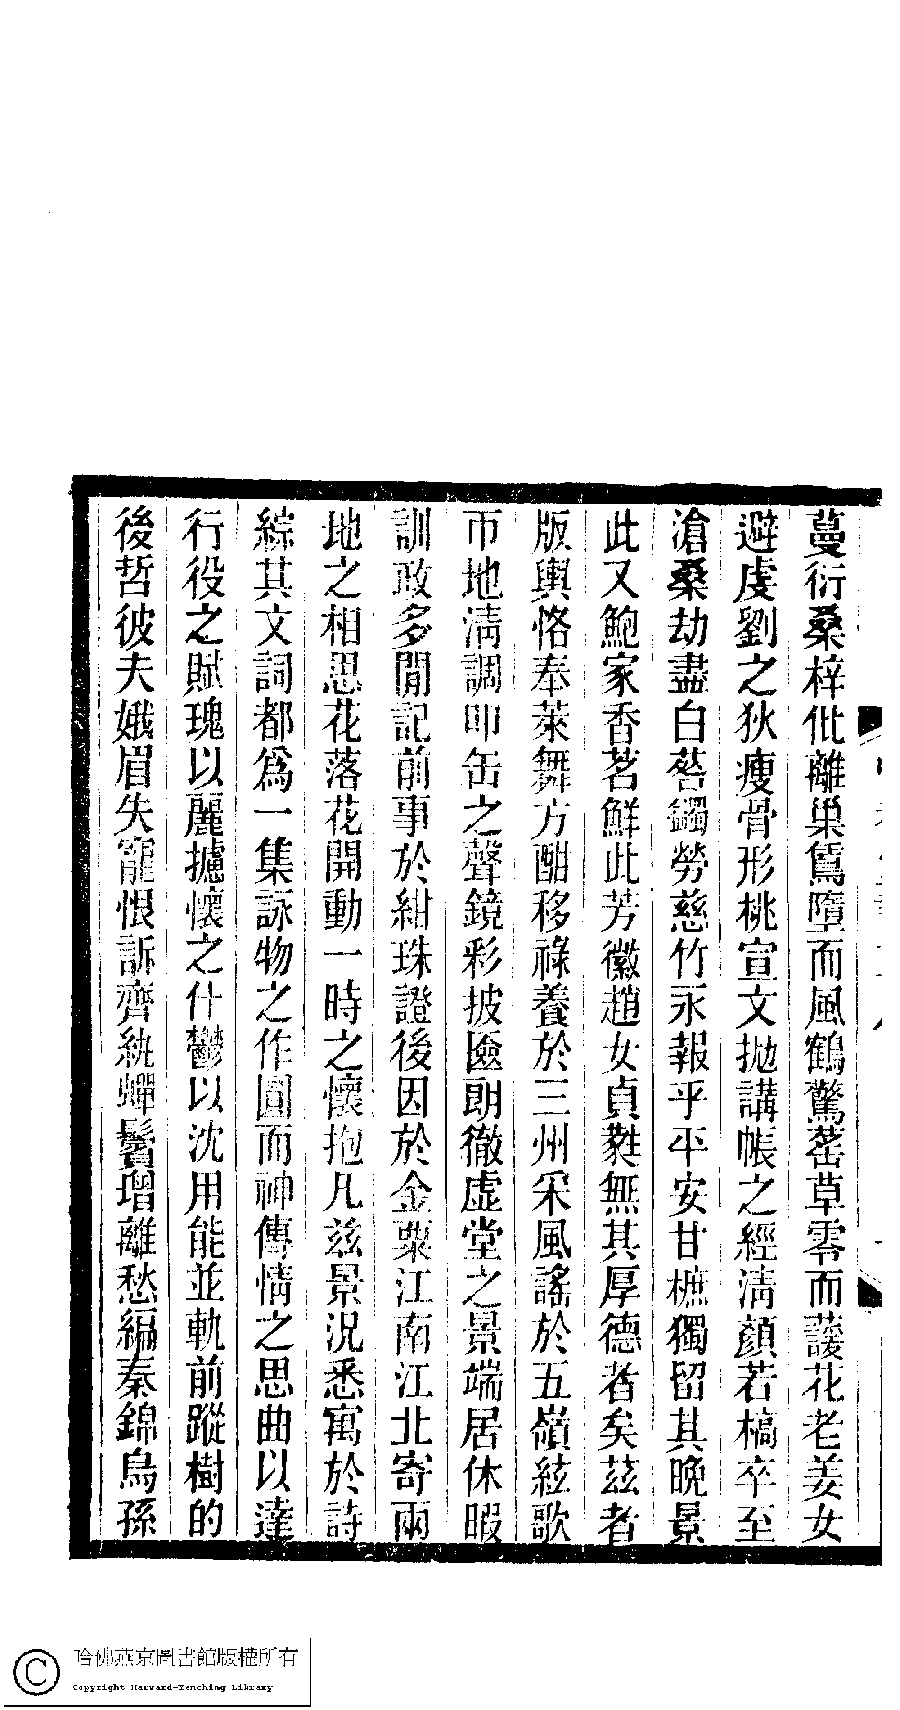 蔓衍桑梓仳離巢鶵墮而風鶴驚菴草零而護花老姜女
避虔劉之狄瘦骨形桃宣文拋講帳之經淸顏若槁卒至
滄桑劫盡白荅鐲勞慈竹永報乎平安甘樜獨留其晚景
此又鮑家香茗鮮此芳徽趙女貞蕤無其厚德者矣茲者
版輿恪奉萊舞方酣移祿養於三州采風謠於五嶺絃歌
帀地淸調叩缶之聲鏡彩披匳朗徹虛堂之景端居休暇
訓政多閒記前事於紺珠證後因於金粟江南江北寄兩
地之相思花落花開動一時之懷抱凡茲景況悉寓於詩
綜其文詞都爲一集詠物之作圓而神傳情之思曲以達
行役之賦瑰以麗攄懷之什鬱以沈用能並軌前蹤樹的
後哲彼夫娥眉失寵恨訴齊紈蟬鬢增離愁編秦錦烏孫
哈佛燕京圖書館版權所有
Copyright Harvard-Yenching Library